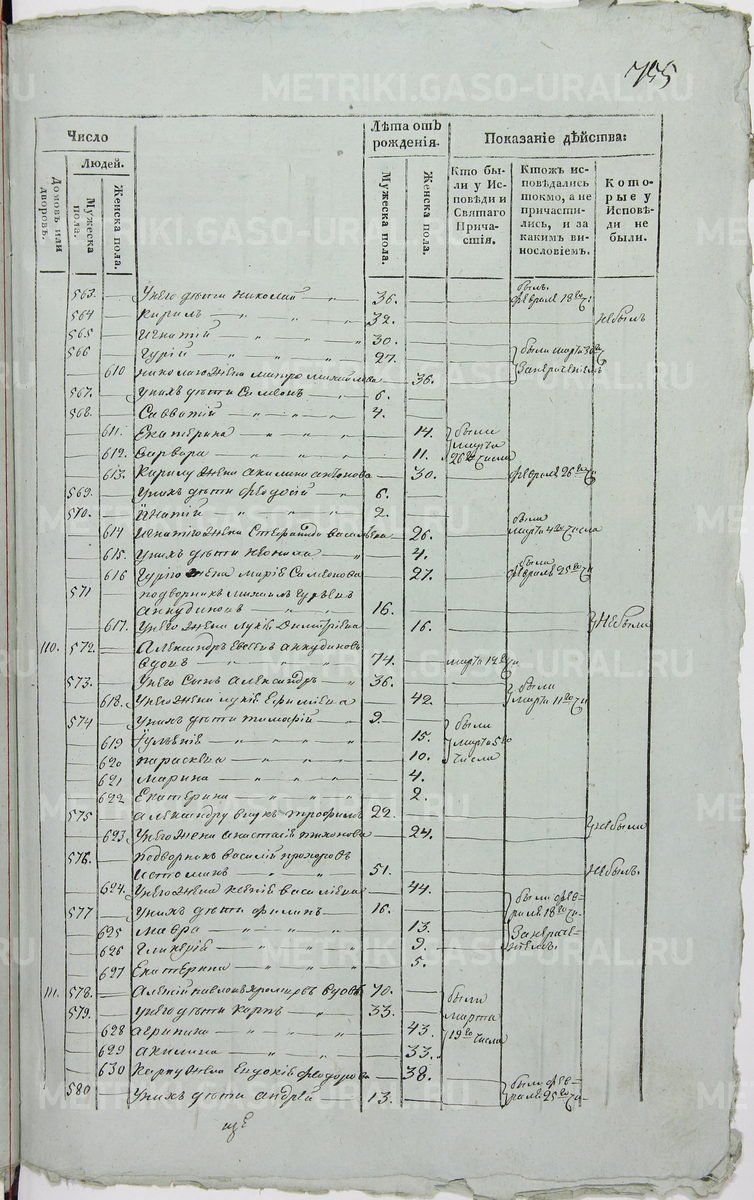 755
Число
Лѣта отъ рожденія.
Показаніе дѣйства:
Людей.
Домовъ или дворовъ.
Мужеска пола.
Женска пола.
Мужеска пола.
Женска пола.
Кто были у Исповѣди и Святаго Причастія.
Ктожъ исповѣдались токмо, а не причастились, и за какимъ винословіемъ.
Которые у Исповѣди не были.
563. У него дѣти Николай 36. былъ февраля 18го чи
564 Кирилъ 32. не былъ
565 Игнатій 30.
566 Гурій 27. были марта
610 Николаю жена Матрона Михайлова 36. За нераченіемъ
567. У нихъ дѣти Симеонъ 6.
568. Савватій 4.
611. Екатерина 14. были
612. Варвара 11. марта 26го числа
613. Кирилу жена Акилина Антонова 30. февраля 26го чи
569. У нихъ дѣти Феодосій 6.
570. Игнатій 2.
614 Игнатію жена Степанида Васильева 26. была марта 4го числа
615. У нихъ дѣти Неонила 4.
616 Гурію жена Марія Симеонова 27. была февраля 25го чи
571 подворникъ Михаилъ Гурьевъ
Анкудиновъ 16.
617. У него жена Лукія Димитріева 16. не были
110. 572. Александръ Евсеевъ Анкудиновъ
вдовъ 74. марта 12го чи
573. У него сынъ Александръ 36. были
618. У него жена Лукія Ефиміева 42. марта 11го чи
574 У нихъ дѣти Тимофій 9. были
619 Іуліанія 15. марта 5го
620 Параскева 10. числа
621 Марина 4.
622 Екатерина 2.
575 Александру внукъ Трофимъ 22.
623. У него жена Анастасія Тихонова 24. не были
576. подворникъ Василій Прохоровъ
Истоминъ 51. не былъ.
624. У него жена Ксенія Василіева 44.
577 У нихъ дѣти Филипъ 16. были февраля 18го чи
625 Мавра 13. За нераченіемъ.
626 Гликерія 9.
627 Екатерина 5.
111. 578. Алексій Павловъ вдовъ 70. были
579. У него дѣти Карпъ 33. марта
628 Агрипина 43. 19го числа
629 Акилина 33.
630 Карпу жена Евдокія Феодорова 38.
580 У нихъ дѣти Андрей 13. были февраля 25го чи
METRIKI.GASO-URAL.RU